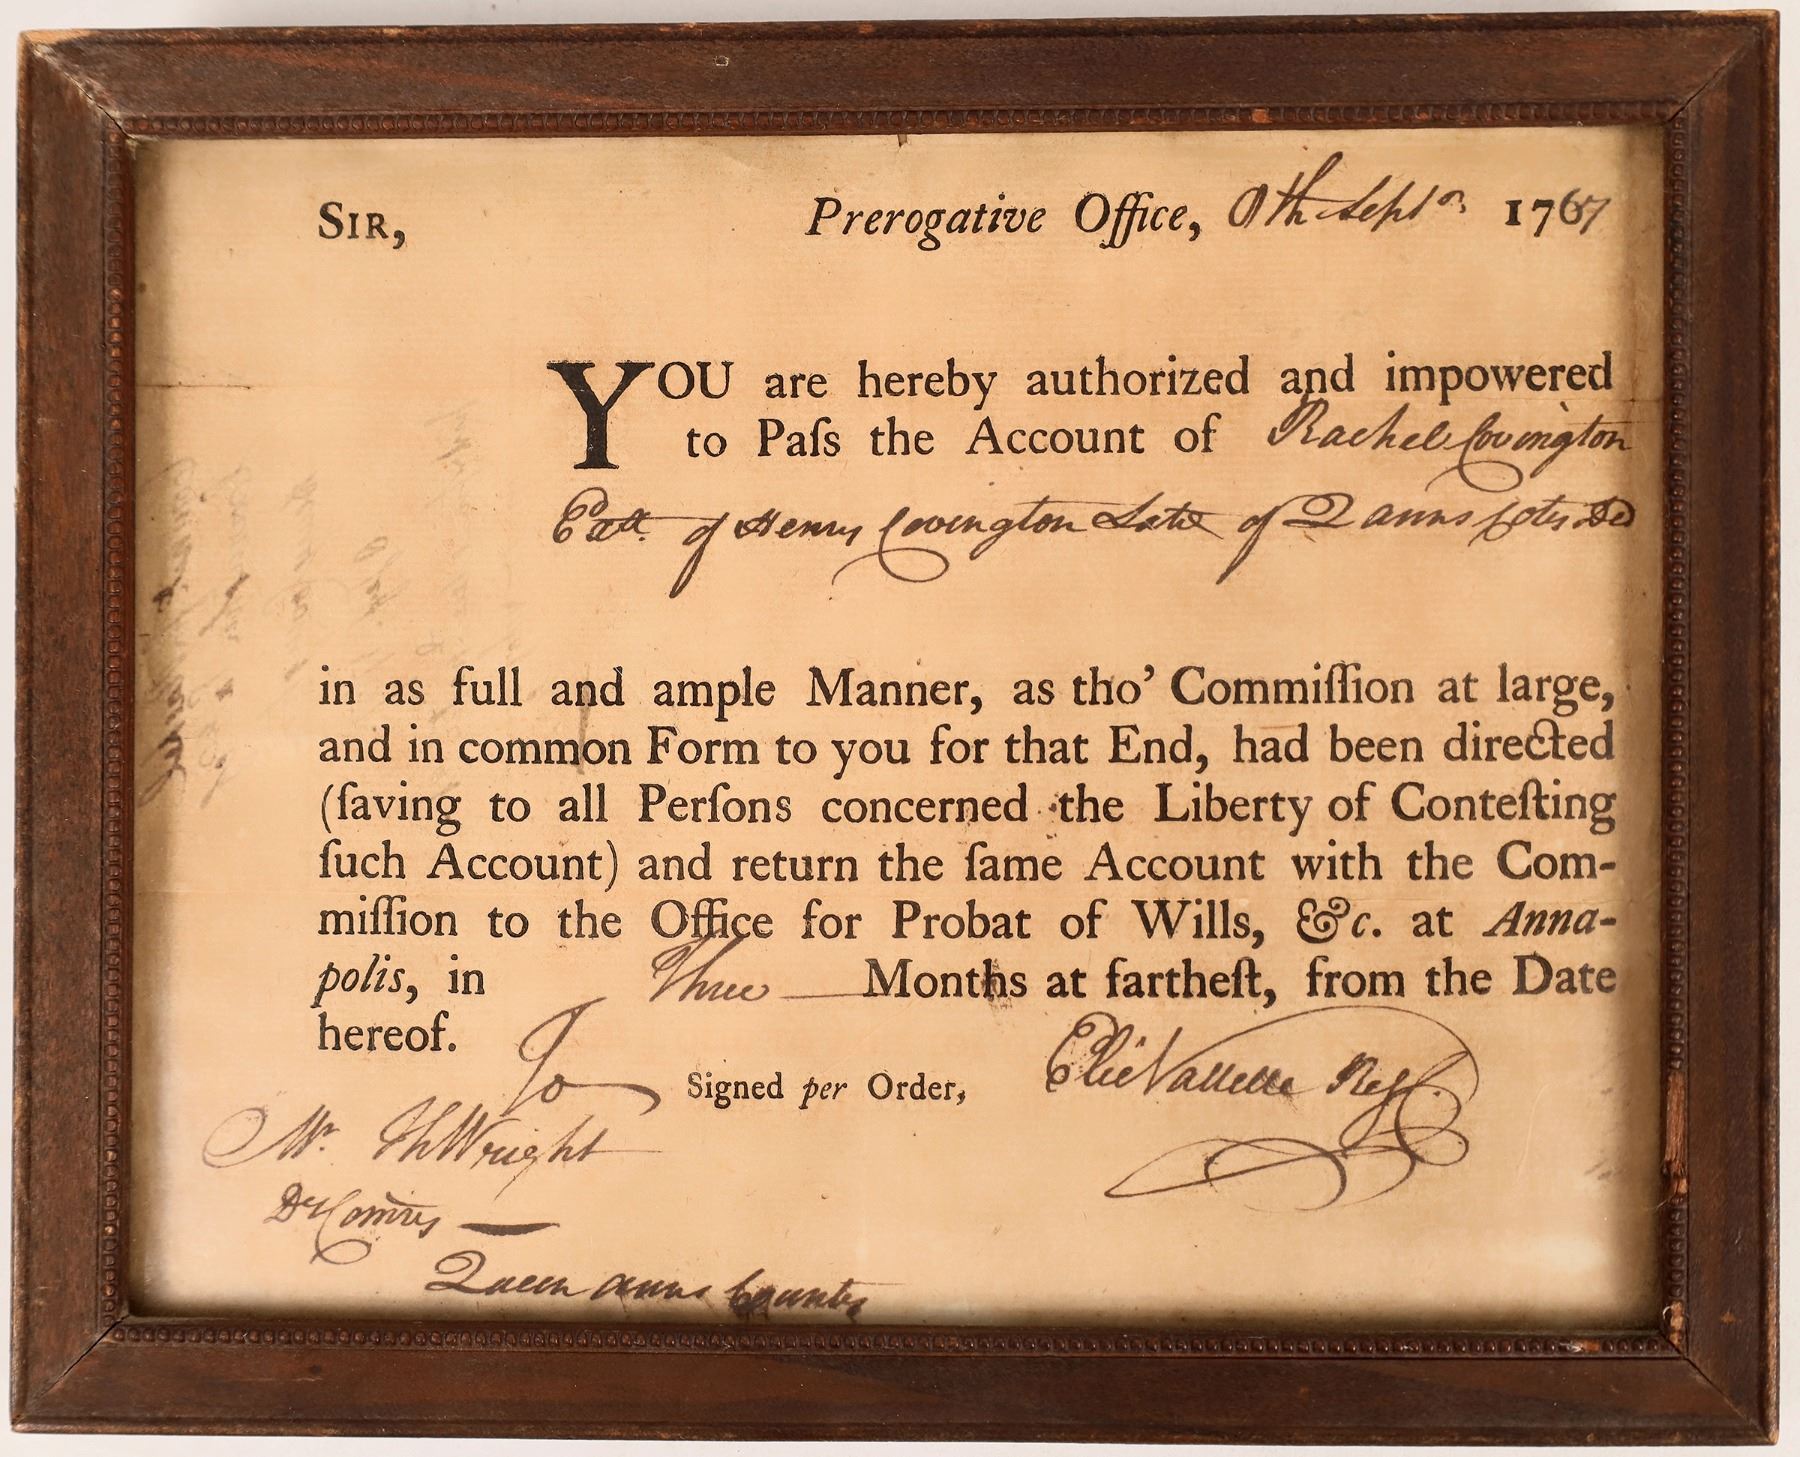 SIR, Prerogative Office, Septr. 1767
YOU are hereby authorized and impowered
to Paſs the Account of Rachel Covington
of Henry Covington Late of Q anns Coty Decd
in as full and ample Manner, as tho' Commiſſion at large,
and in common Form to you for that End, had been directed
(ſaving to all Perſons concerned the Liberty of Conteſting
ſuch Account) and return the ſame Account with the Com-
miſſion to the Office for Probat of Wills, &c. at Anna-
polis, in Three Months at fartheſt, from the Date
hereof.
To Signed per Order, Elie Vallette Regr.
Mr. Th Wright
Dy Comrs
Queen anns County